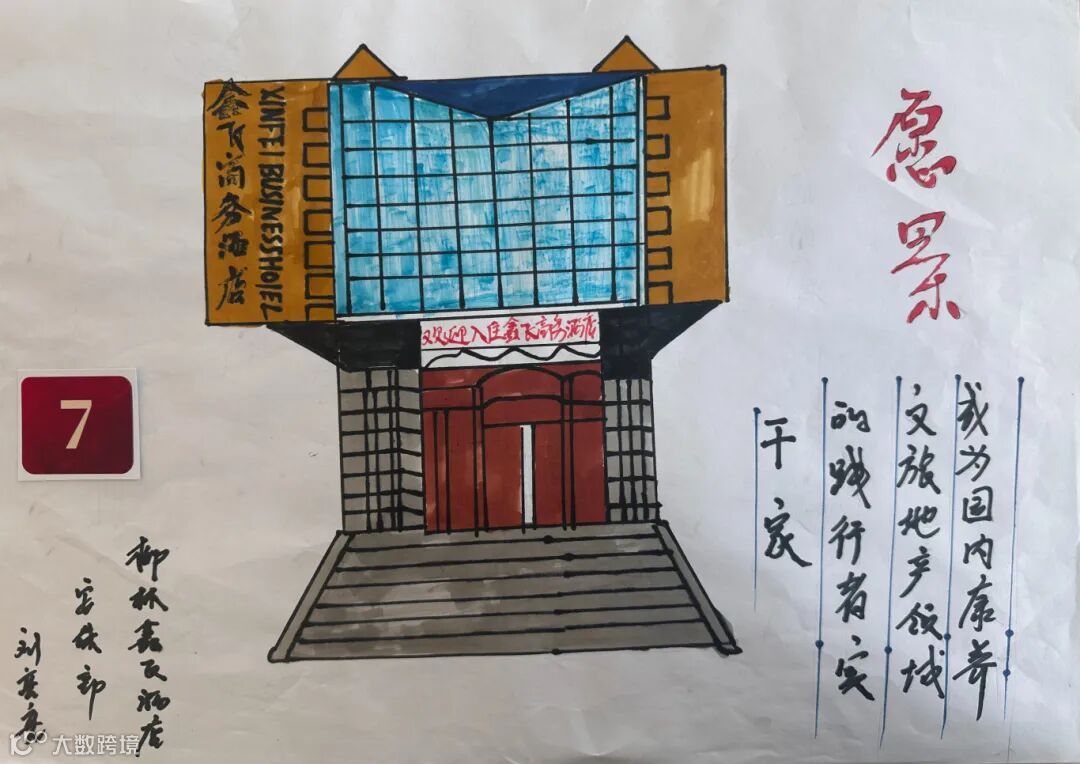 鑫飞商务酒店
XINFEI BUSINESS HOTEL
欢迎入住鑫飞商务酒店
愿景
成为国内康养
文旅地产领域
的践行者实
干家
7
柳林鑫飞酒店
安保部
大数跨境